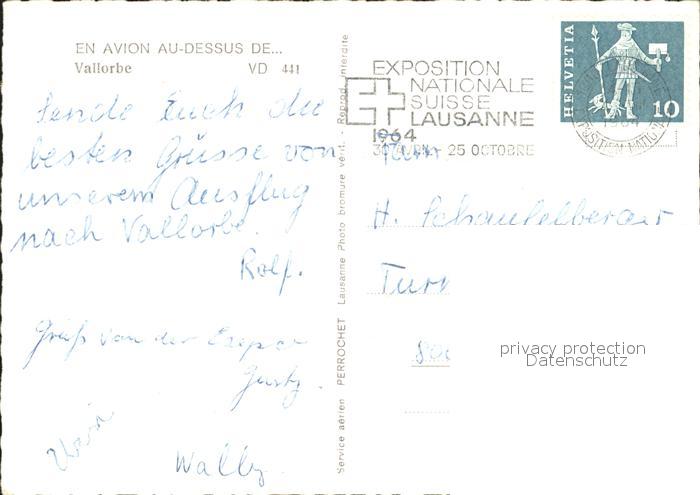 EN AVION AU-DESSUS DE...
Vallorbe VD 441
Sende Euch die
besten Grüsse von
unserem Ausflug
nach Vallorbe.
Rolf.
Gruß von der
Wally.
Service aérien PERROCHET Lausanne Photo bromure vérit. - Reprod. interdite
EXPOSITION
NATIONALE
SUISSE
LAUSANNE
1964
25 OCTOBRE
HELVETIA
10
H.
privacy protection
Datenschutz